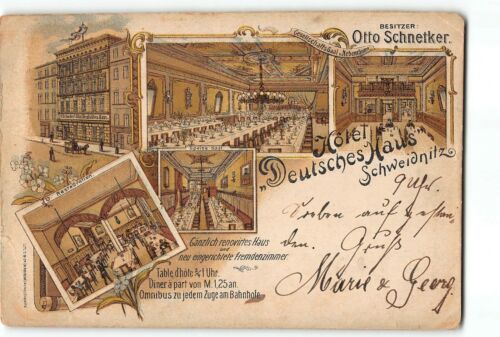 BESITZER:
Otto Schnetker.
Gesellschaftssaal "Nebenhaus"
Speise-Saal
Restauration
Hôtel
"Deutsches Haus"
Schweidnitz
Gänzlich renovirtes Haus
und
neu eingerichtete Fremdenzimmer
Table d'hôte ¾1 Uhr.
Diner à part von M. 1,25 an.
Omnibus zu jedem Zuge am Bahnhofe
9 Uhr.
Soeben auf gestan-
den. Gruß
Marie & Georg.